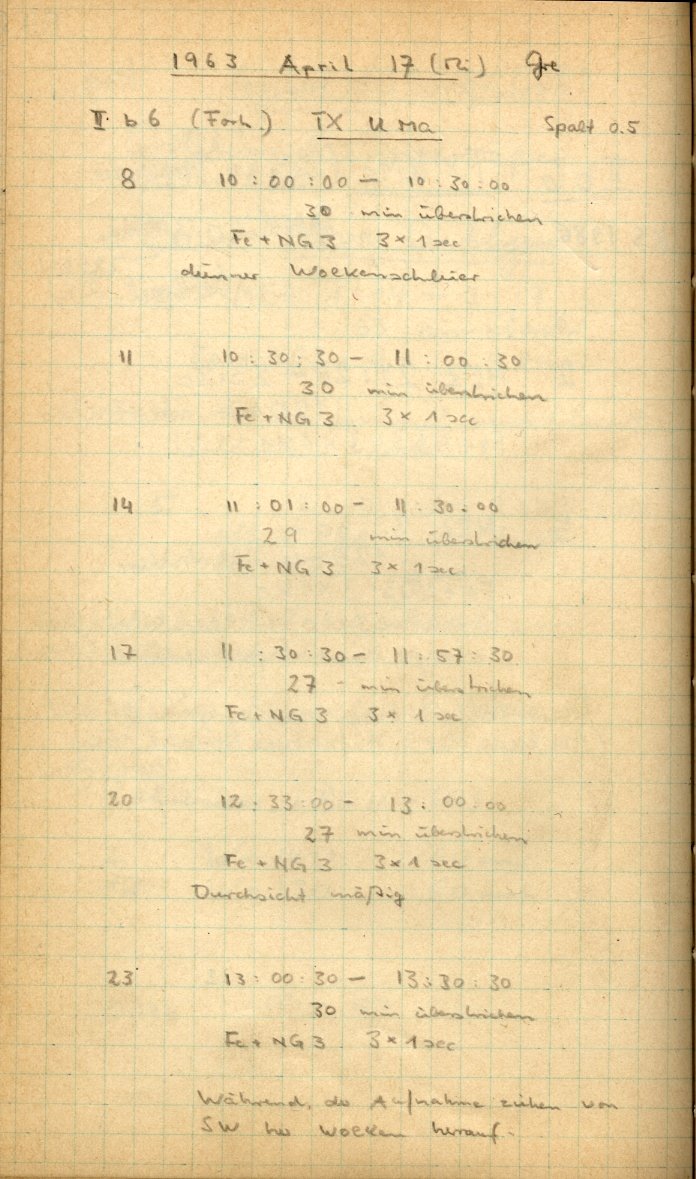 1963 April 17 (Mi) Gre
II b 6 (Forts.) TX U Ma Spalt 0.5
8 10 : 00 : 00 – 10 : 30 : 00
30 min überstrichen
Fe + NG 3 3 × 1 sec
dünner Wolkenschleier
11 10 : 30 : 30 – 11 : 00 : 30
30 min überstrichen
Fe + NG 3 3 × 1 sec
14 11 : 01 : 00 – 11 : 30 : 00
29 min überstrichen
Fe + NG 3 3 × 1 sec
17 11 : 30 : 30 – 11 : 57 : 30
27 min überstrichen
Fe + NG 3 3 × 1 sec
20 12 : 33 : 00 – 13 : 00 : 00
27 min überstrichen
Fe + NG 3 3 × 1 sec
Durchsicht mäßig
23 13 : 00 : 30 – 13 : 30 : 30
30 min überstrichen
Fe + NG 3 3 × 1 sec
Während der Aufnahme ziehen von
SW her Wolken herauf.